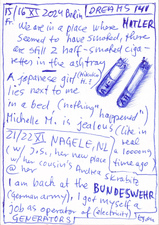 15/16 XI 2024 Berlin DREAMS 148
Fr We are in a place where HITLER
seemed to have smoked, there
are still 2 half-smoked ciga-
rettes in the ashtray
A japanese girl
lies next to me
in a bed ("nothing happened")
Michelle M. is jealous (like in
real
21/22 XI NAGELE, NL looong
w/ J.S., her new place time ago
w/ her cousin's Andrea Skrobts
@ her
I am back at the BUNDESWEHR
(german army), I got myself a
job as operator of (electricity)
GENERATORS